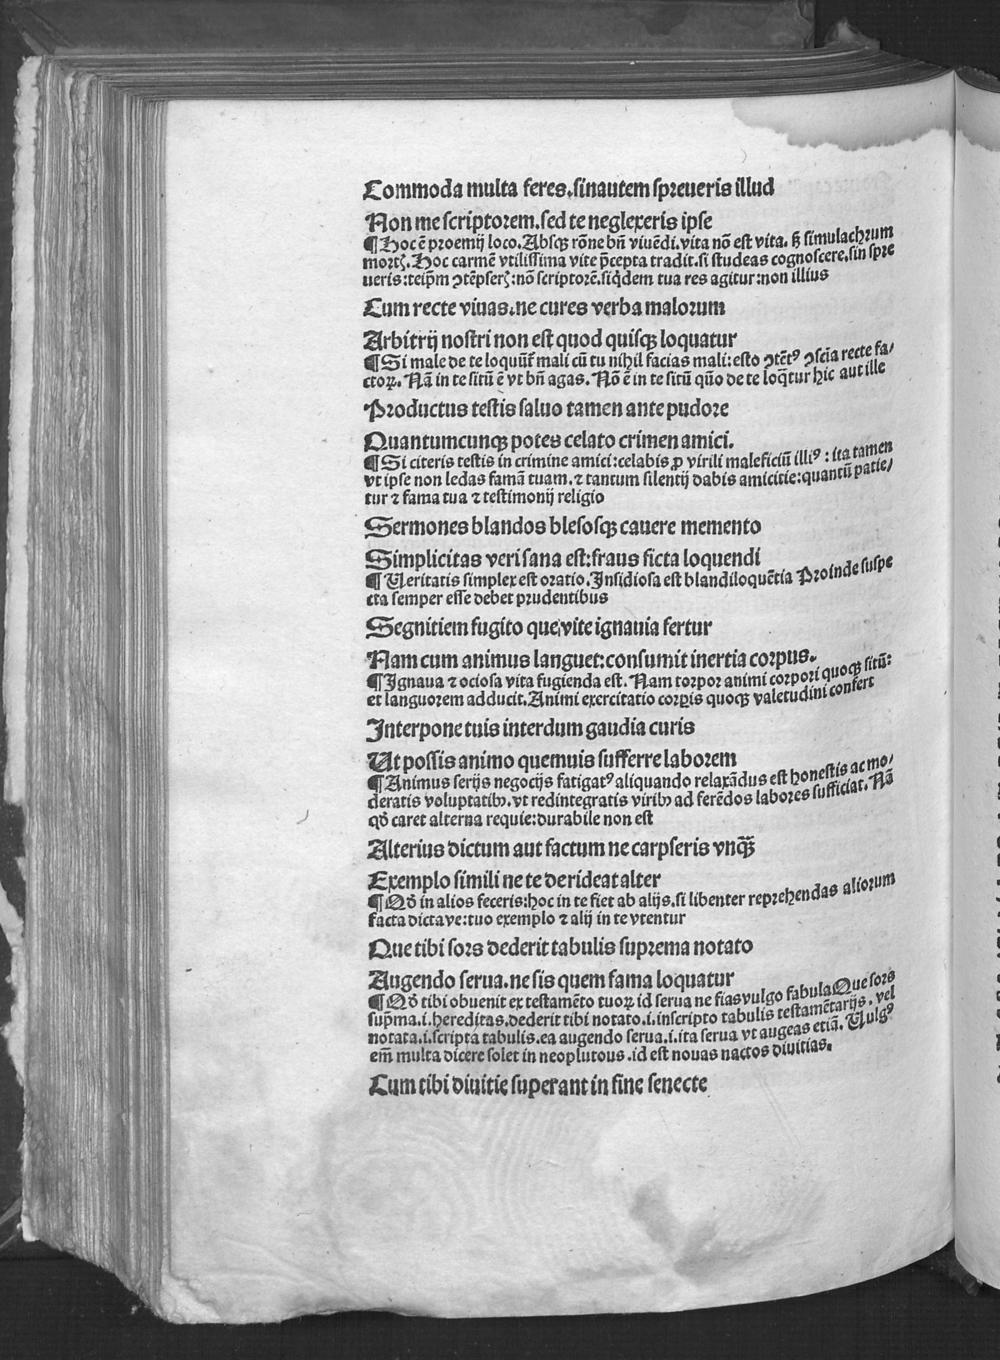 Commoda multa feres.sinautem spreueris illud
Non me scriptorem.sed te neglexeris ipse
¶ Hoc ē proemij loco.Absqꝫ rōne bñ viuēdi.vita nō est vita. sꝫ simulachrum
mortꝭ.Hoc carmē vtilissima vite p̄cepta tradit.si studeas cognoscere.sin spre
ueris:teip̄m ↄtēpserꝭ:nō scriptorē.siq̇dem tua res agitur:non illius
Cum recte viuas.ne cures verba malorum
Arbitrij nostri non est quod quisqꝫ loquatur
¶ Si male de te loquūt̄ mali cū tu nihil facias mali:esto ↄtēt⁹ ↄscīa recte fa/
ctoꝝ. Nā in te sitū ē vt bñ agas. Nō ē in te sitū quo de te loq̄tur hic aut ille
Productus testis saluo tamen ante pudore
Quantumcunqꝫ potes celato crimen amici.
¶ Si citeris testis in crimine amici:celabis ꝓ virili maleficiū illi⁹ : ita tamen
vt ipse non ledas famā tuam.⁊ tantum silentij dabis amicitie:quantū patie/
tur ⁊ fama tua ⁊ testimonij religio
Sermones blandos blesosqꝫ cauere memento
Simplicitas veri sana est:fraus ficta loquendi
¶ Ueritatis simplex est oratio.Insidiosa est blandiloquētia Proinde suspe
cta semper esse debet prudentibus
Segnitiem fugito que vite ignauia fertur
Nam cum animus languet:consumit inertia corpus.
¶ Ignaua ⁊ ociosa vita fugienda est. Nam torpor animi corpori quoqꝫ sitū:
et languorem adducit.Animi exercitatio corꝑis quoqꝫ valetudini confert
Interpone tuis interdum gaudia curis
Ut possis animo quemuis sufferre laborem
¶ Animus serijs negocijs fatigat⁹ aliquando relaxādus est honestis ac mo/
deratis voluptatibꝫ.vt redintegratis viribꝫ ad ferēdos labores sufficiat. Nā
qḋ caret alterna requie:durabile non est
Alterius dictum aut factum ne carpseris vnq̄ꝫ
Exemplo simili ne te derideat alter
¶ Qḋ in alios feceris:hoc in te fiet ab alijs.si libenter reprehendas aliorum
facta dictave:tuo exemplo ⁊ alij in te vtentur
Que tibi sors dederit tabulis suprema notato
Augendo serua.ne sis quem fama loquatur
¶ Qḋ tibi obuenit ex testamēto tuoꝝ id serua ne fias vulgo fabula Que sors
sup̄ma.i.hereditas.dederit tibi notato.i.inscripto tabulis testamētarijs. vel
notata.i.scripta tabulis.ea augendo serua.i.ita serua vt augeas etiā. Uulg⁹
em̄ multa dicere solet in neoplutous .id est nouas nactos diuitias.
Cum tibi diuitię superant in fine senecte